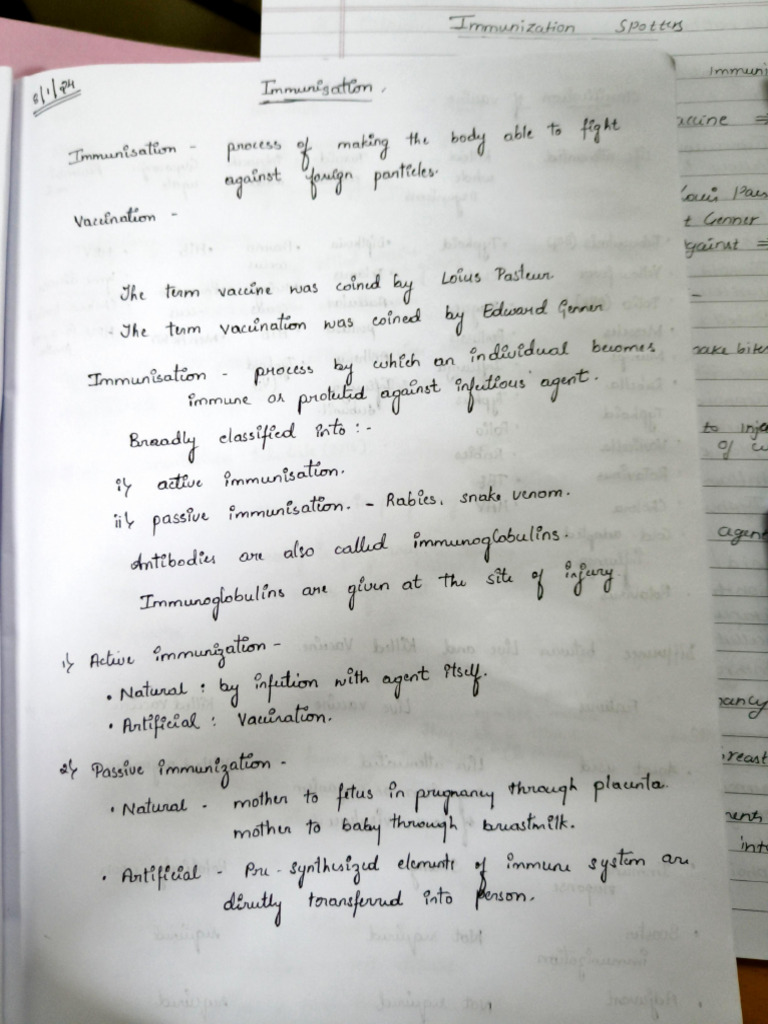 Immunization Spotters
8/1/24
Immunisation.
Immunisation - process of making the body able to fight
against foreign particles.
Vaccination -
The term vaccine was coined by Loius Pasteur.
The term vaccination was coined by Edward Genner
Immunisation - process by which an individual becomes
immune or protected against infectious agent.
Broadly classified into :-
i) active immunisation.
ii) passive immunisation. - Rabies, snake venom.
Antibodies are also called immunoglobulins.
Immunoglobulins are given at the site of injury.
1) Active immunization -
• Natural : by infection with agent itself.
• Artificial : Vaccination.
2) Passive immunization -
• Natural - mother to fetus in pregnancy through placenta.
mother to baby through breastmilk.
• Artificial - Pre-synthesized elements of immune system are
directly transferred into person.
immuni
accine ⇒
Louis Pas
t Genner
against ⇒
nake bites
to injec
of
agent
nancy
breast
ments
into